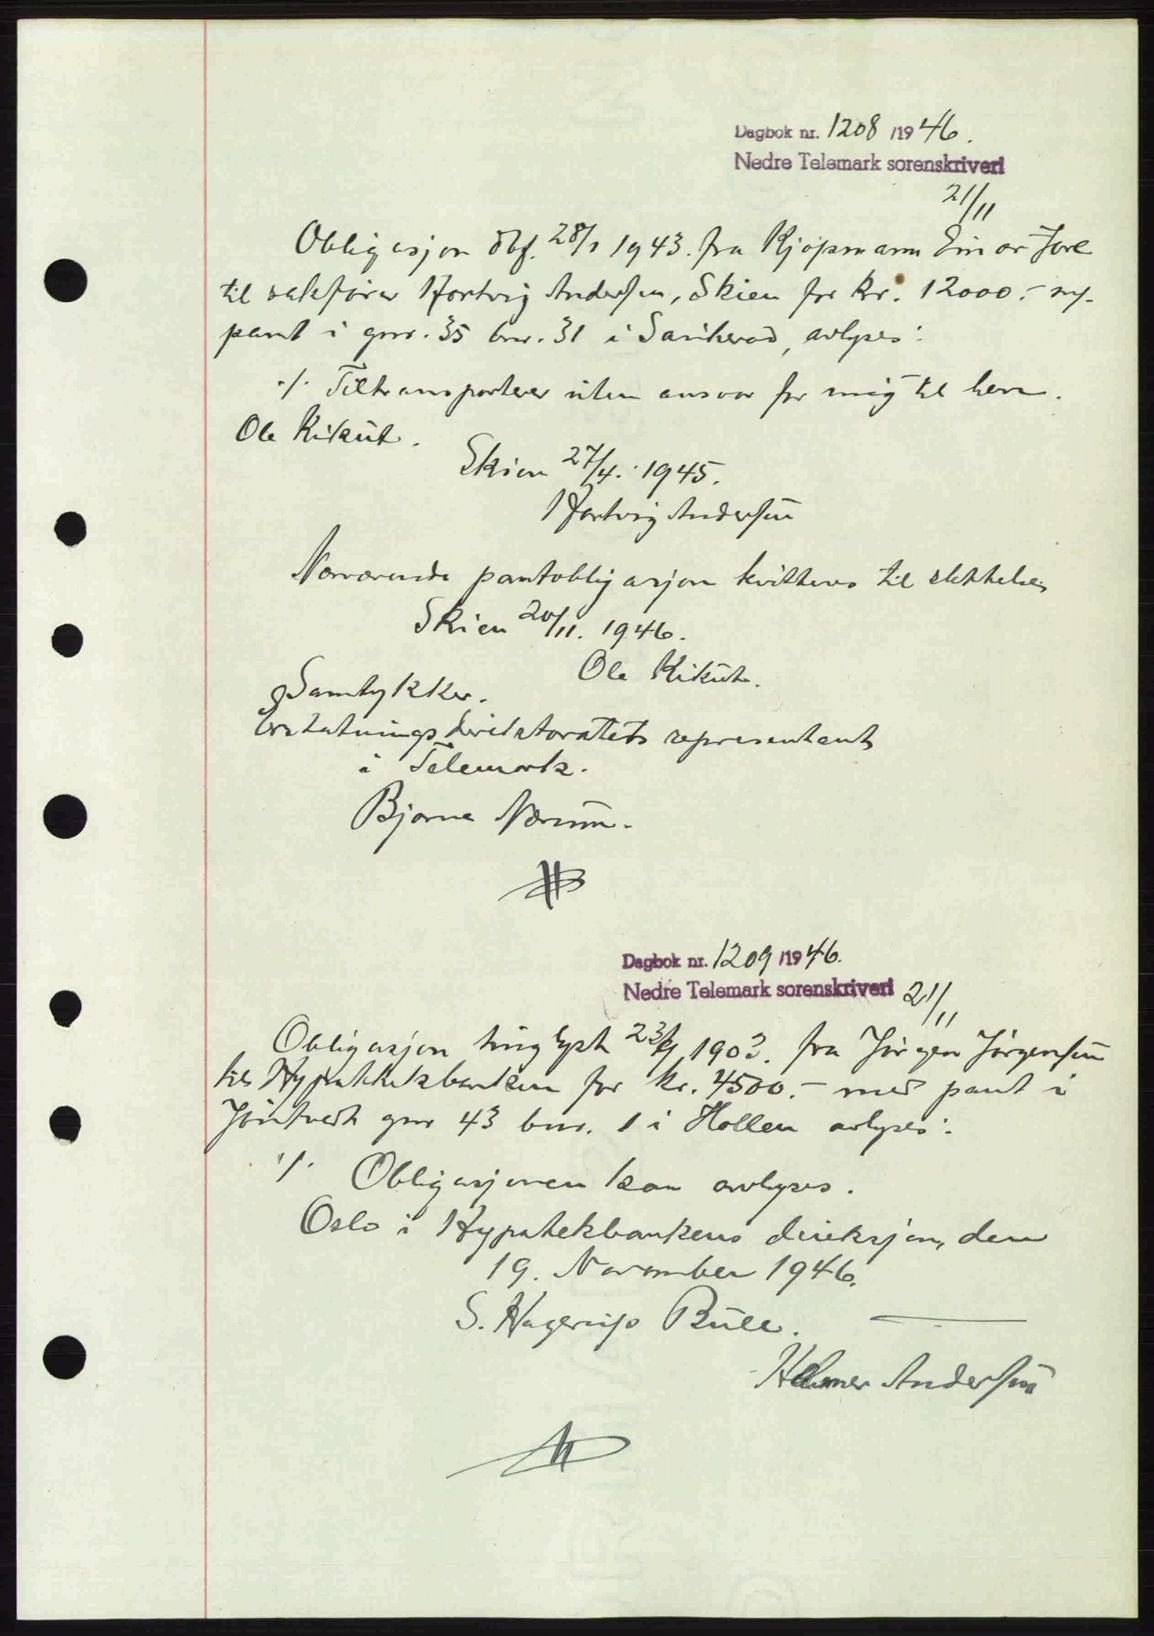 Dagbok nr. 1208 /1946.
Nedre Telemark sorenskriveri
21/11
Obligasjon dbf. 28/1 1943. fra Kjöpmann Einar Jore
til sakförer Hartvig Andersen, Skien for kr. 12000.- m/-
pant i gnr. 35 bnr. 31 i Sauherad, avlyses:
./. Tiltransporteres uten ansvar for mig til herr.
Ole Kikut.
Skien 27/4. 1945.
Hartvig Andersen
Nærværende pantobligasjon kvitteres til slettelse,
Skien 20/11. 1946.
Ole Kikut.
Samtykker.
Erstatningsdirektoratets representant
i Telemark.
Bjarne Nærum.
Dagbok nr. 1209 /1946.
Nedre Telemark sorenskriveri 21/11
Obligasjon tinglyst 23/9 1903. fra Jörgen Jörgensen
til Hypotekbanken for kr. 4500.- med pant i
Jöntvedt gnr 43 bnr. 1 i Hollen avlyses:
./. Obligasjonen kan avlyses.
Oslo i Hypotekbankens direksjon, den
19. November 1946.
S. Hagerup Bull.
Helmer Andersen